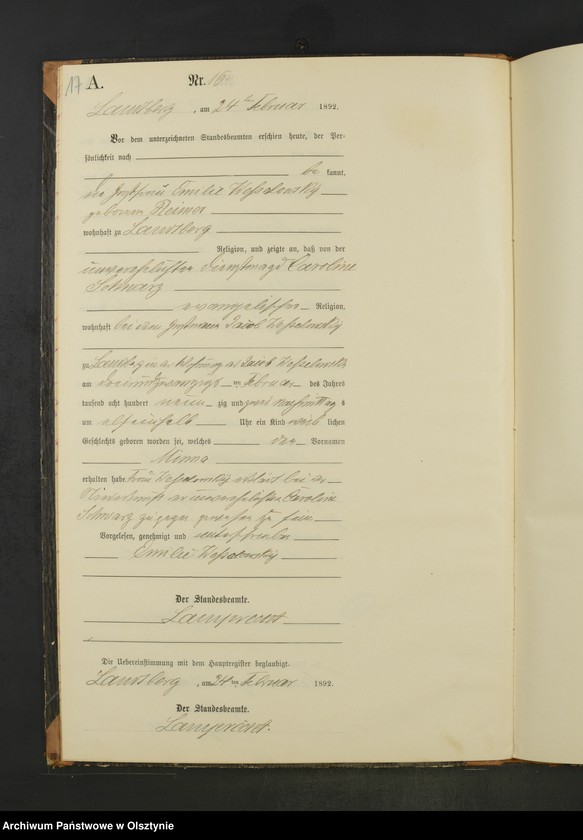 17 A. Nr. 16
Landsberg, am 24ten Februar 1892.
Vor dem unterzeichneten Standesbeamten erschien heute, der Per-
sönlichkeit nach
be kannt,
die Emilie Wesselowsky
geborene Reimer
wohnhaft zu Landsberg
Religion, und zeigte an, daß von der
unverehelichten Dienstmagd Caroline
Schwarz
evangelischer Religion,
wohnhaft bei dem Jacob Wesselowsky
zu Landsberg in der Wohnung des Jacob Wesselowsky
am dreiundzwanzigsten Februar des Jahres
tausend acht hundert neun zig und zwei Nachmittags
um elfeinhalb Uhr ein Kind weib lichen
Geschlechts geboren worden sei, welches den Vornamen
Minna
erhalten habe. Frau Wesselowsky erklärt bei der
Niederkunft der unverehelichten Caroline
Schwarz zugegen gewesen zu sein
Vorgelesen, genehmigt und unterschrieben
Emilie Wesselowsky
Der Standesbeamte.
Lamprecht
Die Uebereinstimmung mit dem Hauptregister beglaubigt.
Landsberg, am 24ten Februar 1892.
Der Standesbeamte.
Lamprecht.
Archiwum Państwowe w Olsztynie